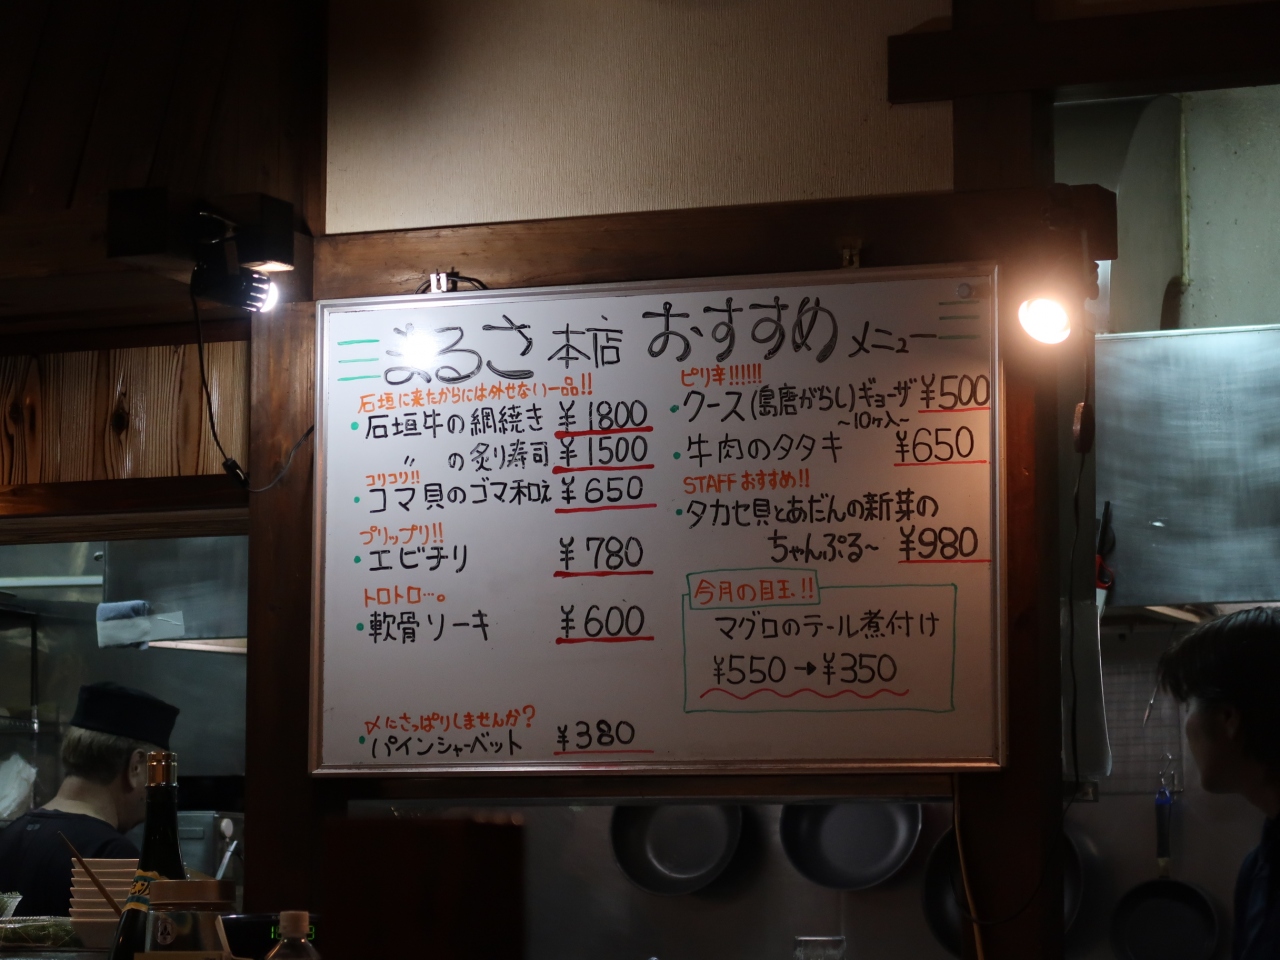 まるさ本店 おすすめメニュー
石垣に来たからには外せない一品!!
・石垣牛の網焼き ¥1800
〃 の炙り寿司 ¥1500
コリコリ!!
・コマ貝のゴマ和え ¥650
プリップリ!!
・エビチリ ¥780
トロトロ…。
・軟骨ソーキ ¥600
〆にさっぱりしませんか?
・パインシャーベット ¥380
ピリ辛!!!!!!
・クース(島唐がらし)ギョーザ ¥500
~10ヶ入~
・牛肉のタタキ ¥650
STAFFおすすめ!!
・タカセ貝とあだんの新芽の
ちゃんぷる~ ¥980
今月の目玉!!
マグロのテール煮付け
¥550→¥350